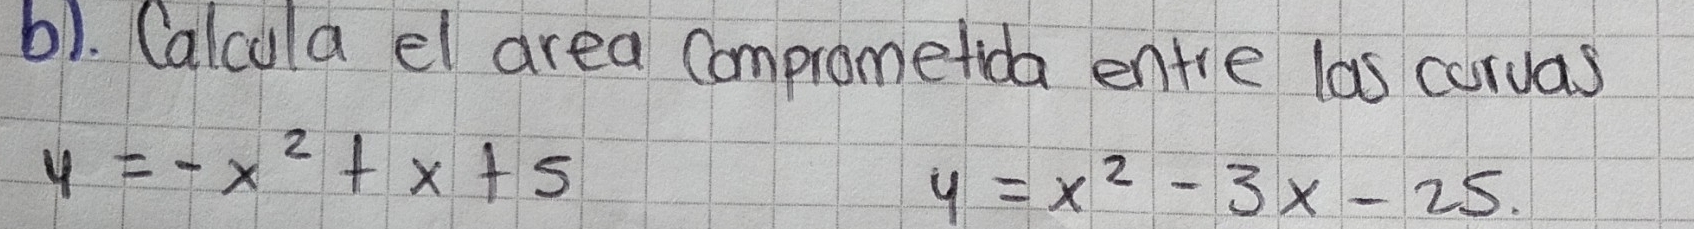 b). Calcula el area Comprometida entre las curvas
y = -x² + x + 5 y = x² - 3x - 25.